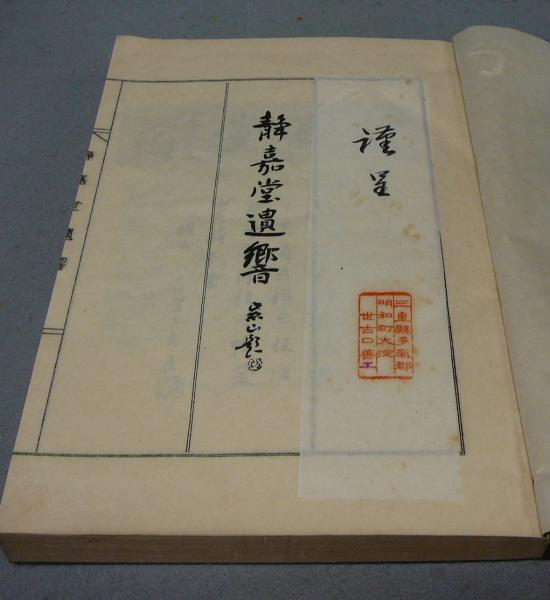 謹呈
三重縣多氣郡
明和町大淀
世古口
静嘉堂遺響
題
静嘉堂遺響